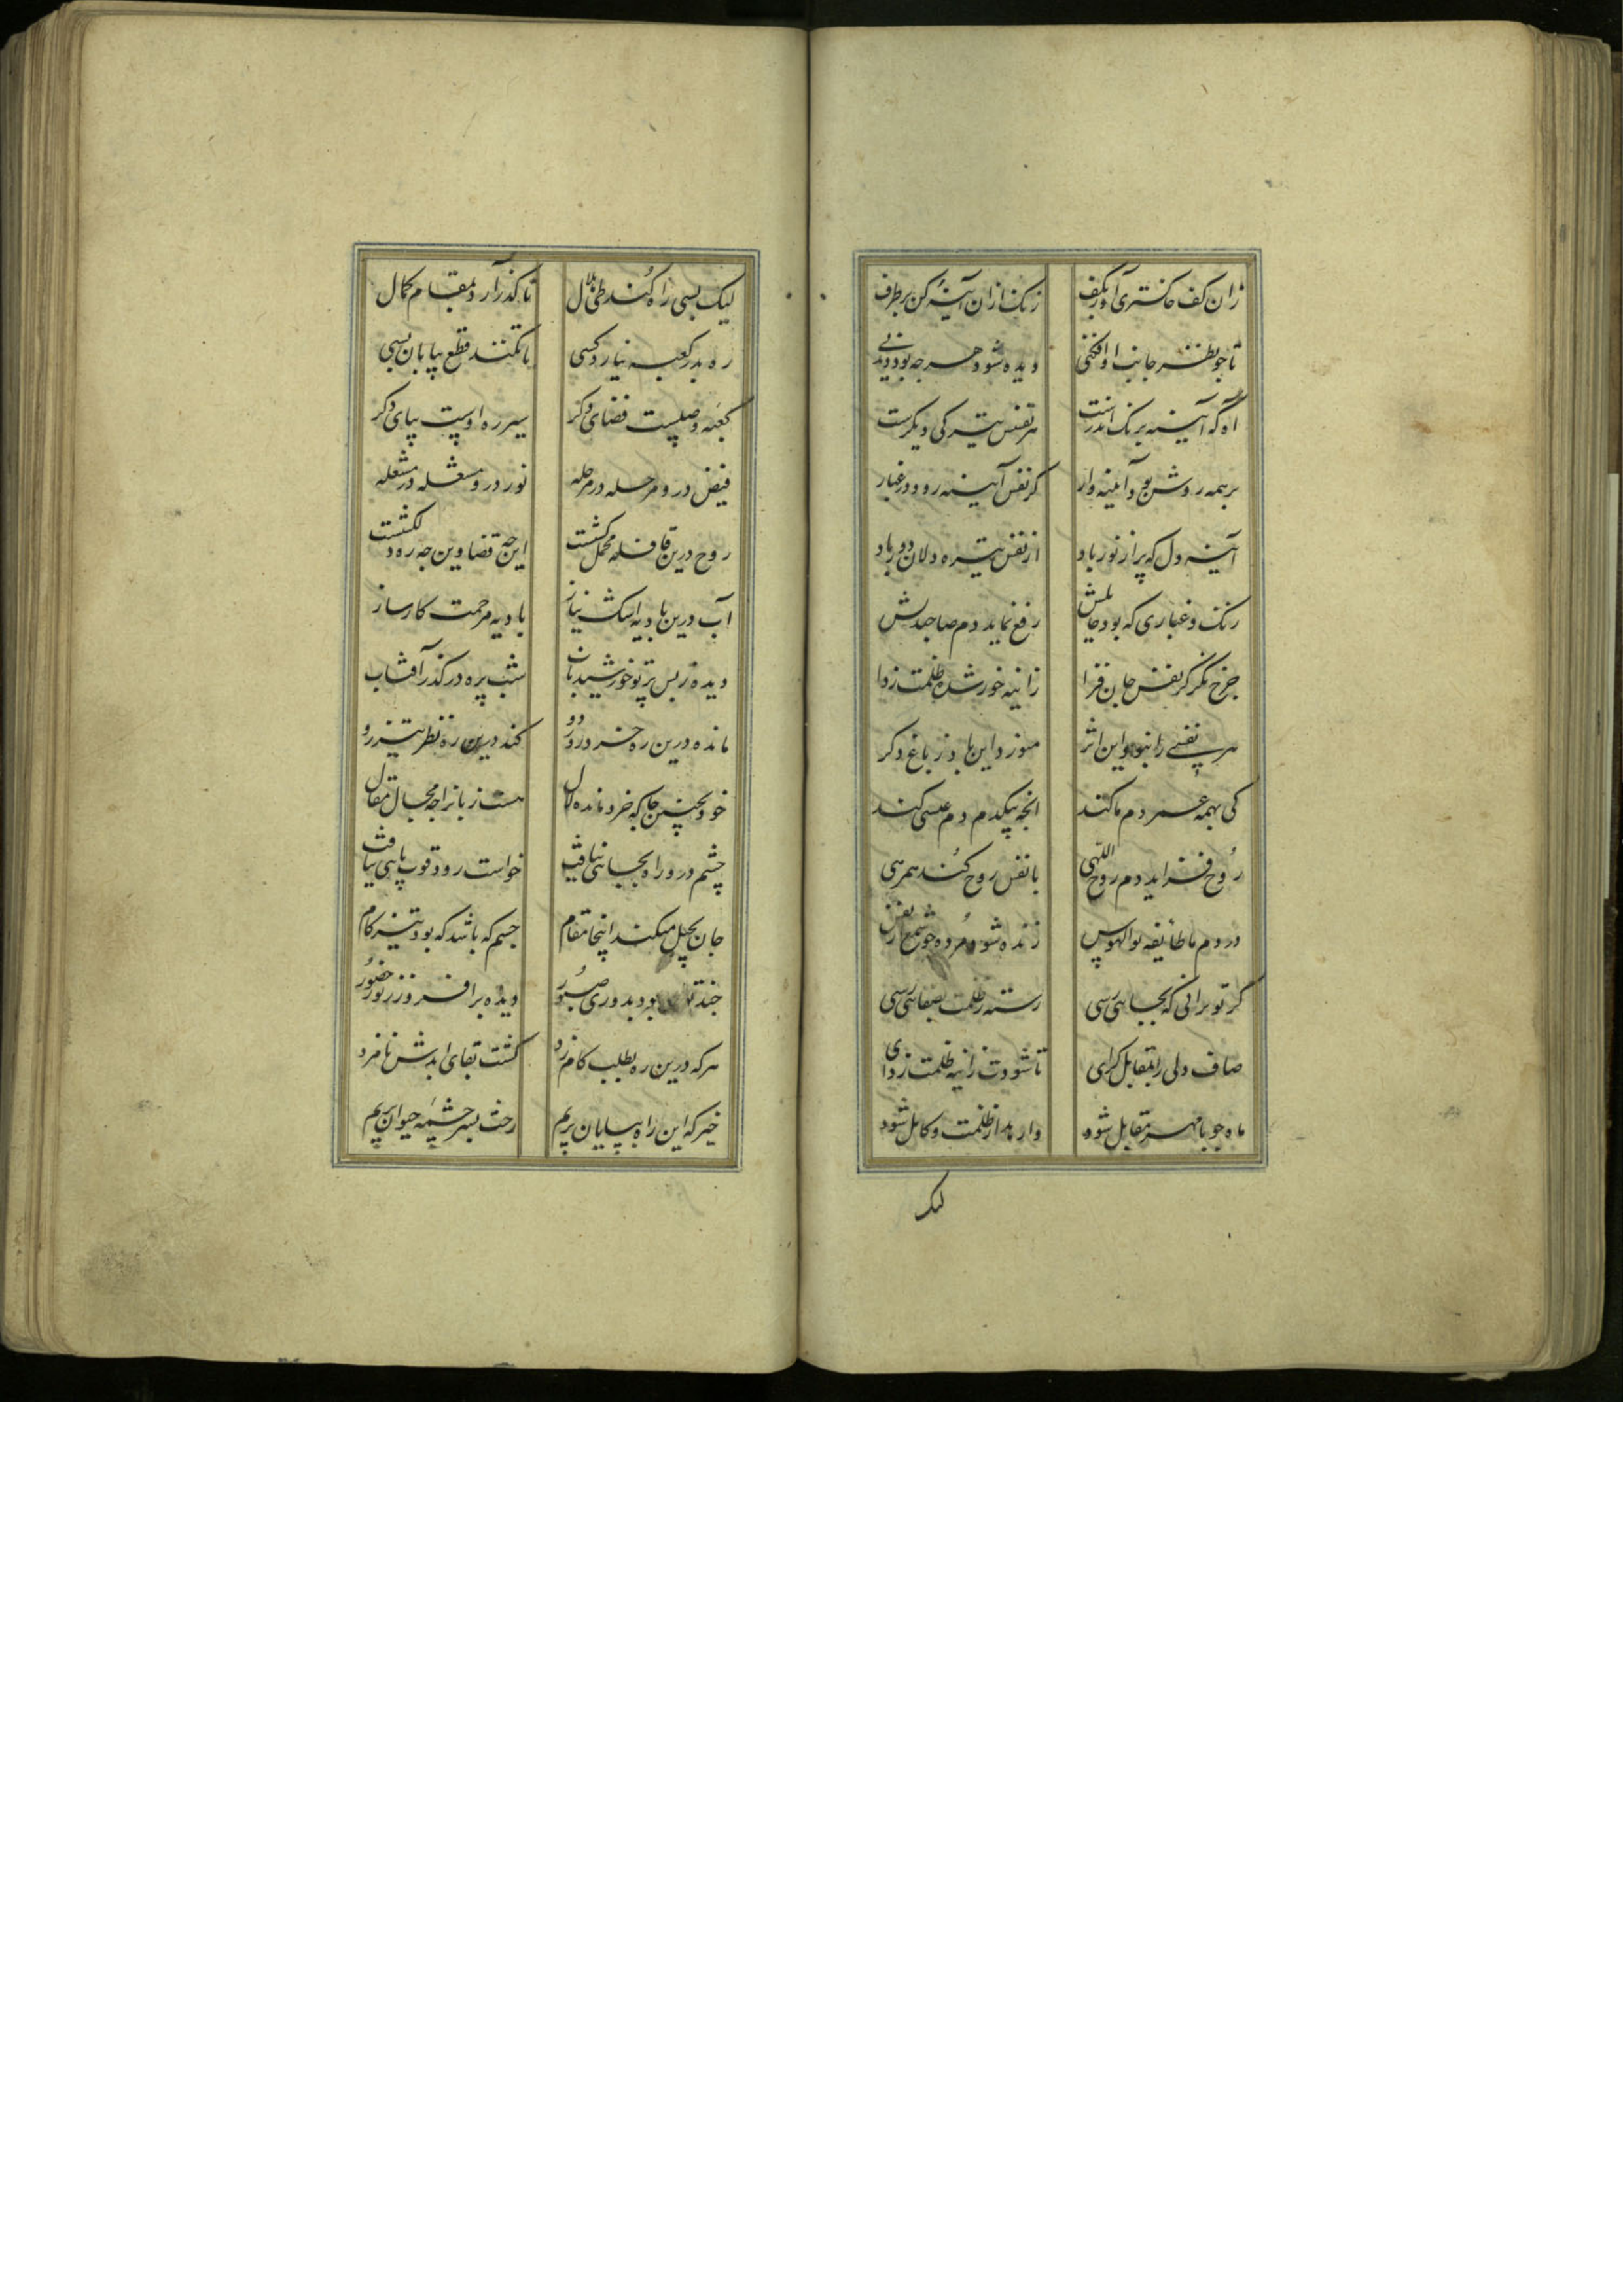 زان کف خاکستری آور بکف زنک ازان آینه کن برطرف
تا جو نظر جانب او افکنی دیده شود هر جه بود دیدنی
آه که آیینه بزنک اندرست هر نفس تیرکی دیکرست
بر همه روشن بود آیینه وار کز نفس آیینه رود در غبار
آینه دل که پر از نور باد از نفس تیره دلان دور باد
زنک و غباری که بود حایلش رفع نماید دم صاحبدلش
جرخ نکر کز نفس جان فزا زاینه خور شده ظلمت زدا
هر نفسی را نبود این اثر میوزد این باد ز باغ دکر
کی بهمه عمر دم ما کند انجه بیکدم دم عیسی کند
روح فزاید دم روح اللهی با نفس روح کند همرهی
در دم ما طایفه بوالهوس زنده شود مرده جو شمع از نفس
کر تو برانی که بجایی رسی رسته ز ظلمت بصفایی رسی
صاف دلی را بمقابل کرای تا شودت زاینه ظلمت زدای
ماه جو با مهر مقابل شود وارهد از ظلمت و کامل شود
لیک
لیک بسی راه کند طی هلال تا کذر آرد بمقام کمال
ره بدر کعبه نیارد کسی تا نکند قطع بیابان بسی
کعبه وصلست فضای دکر سیر ره اوست بپای دکر
فیض درو مرحله در مرحله نور درو مشعله در مشعله
روح درین قافله محمل کشست این جه فضا وین جه ره دلکشست
آب درین بادیه اشک نیاز بادیه مرحمت کارساز
دیده ز بس پرتو خورشید تاب شب پره در کذر آفتاب
مانده درین ره خرد دور دو کند درین ره نظر تیز رو
خود بجنین جا که خرد مانده لال هست زبانرا جه مجال مقال
چشم درو راه بجایی نیافت خواست رود قوت پایی نیافت
جان بحیل میکند اینجا مقام جسم که باشد که بود تیز کام
جند بود بدوری صبور دیده برافروز ز نور حضور
هر که درین ره بطلب کام زد کشت بقای ابدش نامزد
خیز که این راه بپایان بریم رخت بسر چشمه حیوان بریم